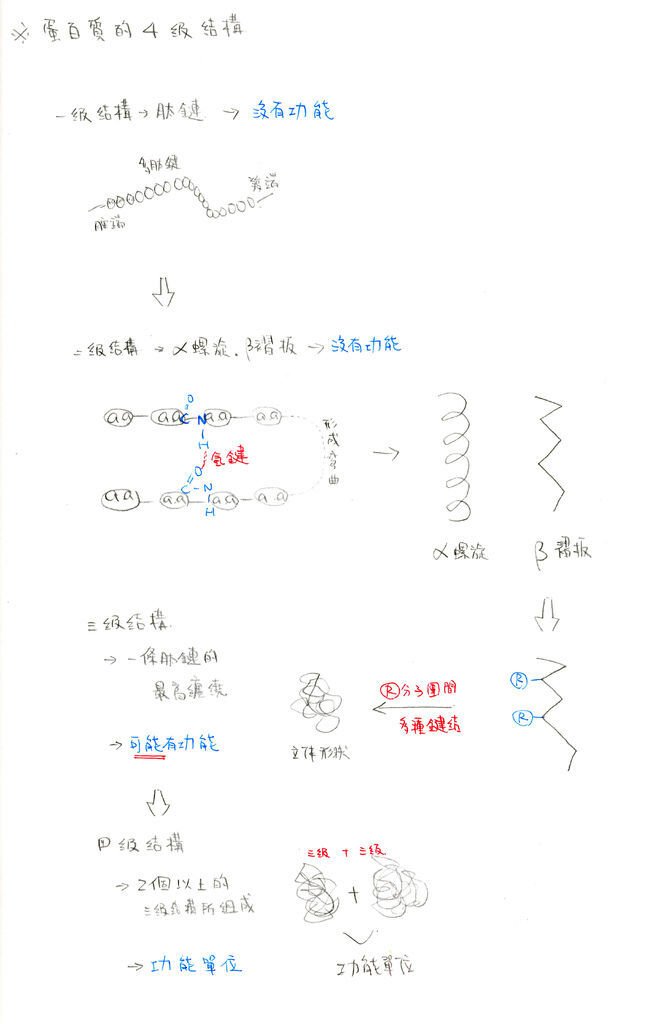 ※ 蛋白質的4級結構
一級結構→肽鏈 → 沒有功能
多肽鏈
胺端
羧端
二級結構 → α螺旋、β褶板 → 沒有功能
O
aa aa C N aa aa
H
氫鍵
形成彎曲
O
C N
H
aa aa aa aa
α螺旋 β褶板
三級結構
→ 一條肽鏈的
最高纏繞
→ 可能有功能
立体形狀
R分子團間
多種鍵結
R
R
四級結構
→ 2個以上的
三級結構所組成
→ 功能單位
三級 + 三級
+
功能單位